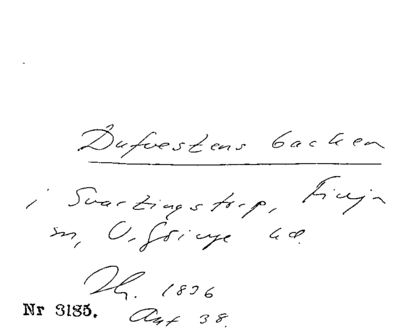 Dufvestens backen
i Svartingstorp, Finja
sn, V. Göinge hd.
Th. 1896
Nr 3185. Ant 38.